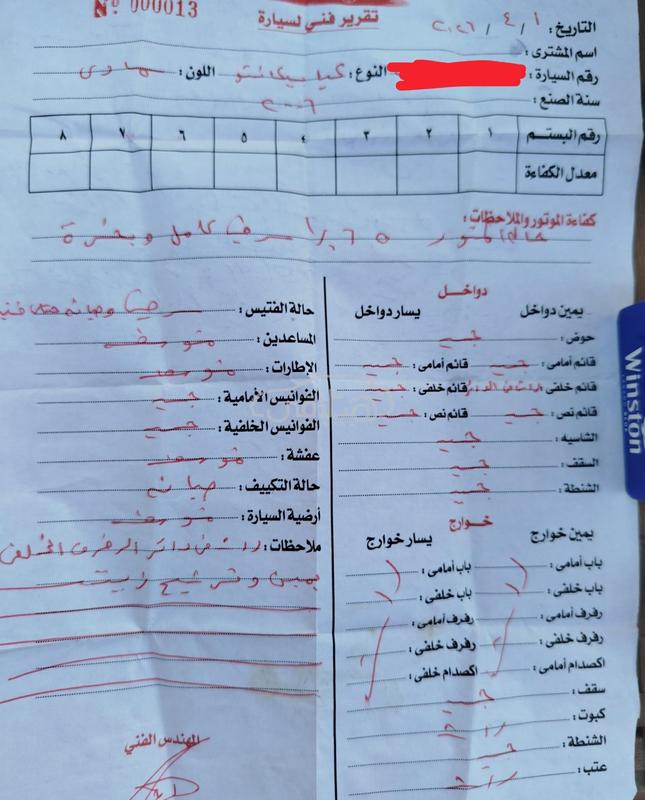 Nº 000013
تقرير فني لسيارة
التاريخ : ١ / ٤ / ٢٠٢٦
اسم المشترى :
رقم السيارة : النوع : كيا بيكانتو اللون : سماوى
سنة الصنع : ٢٠٠٦
رقم البستم ١ ٢ ٣ ٤ ٥ ٦ ٧ ٨
معدل الكفاءة
كفاءة الموتور والملاحظات :
حالة الموتور ٦٥ ٪ كامل وبخرة
دواخل
يمين دواخل يسار دواخل
حوض : جيد
قائم أمامى : جيد قائم أمامى : جيد
قائم خلفى : قائم خلفى : جيد
قائم نص : جيد قائم نص : جيد
الشاسيه : جيد
السقف : جيد
الشنطة : جيد
خوارج
يمين خوارج يسار خوارج
باب أمامى : باب أمامى :
باب خلفى : باب خلفى :
رفرف أمامى : رفرف أمامى :
رفرف خلفى : رفرف خلفى :
اكصدام أمامى : اكصدام خلفى :
سقف : جيد
كبوت : رش
الشنطة : جيد
عتب : رش
حالة الفتيس : وصيانة
المساعدين : متوسط
الإطارات : متوسط
الفوانيس الأمامية : جيد
الفوانيس الخلفية : جيد
عفشة : متوسط
حالة التكييف : صيانة
أرضية السيارة : متوسط
ملاحظات : رش فى دائر الرفرف الخلفى
يمين وترشيح زيت
المهندس الفني
Winston